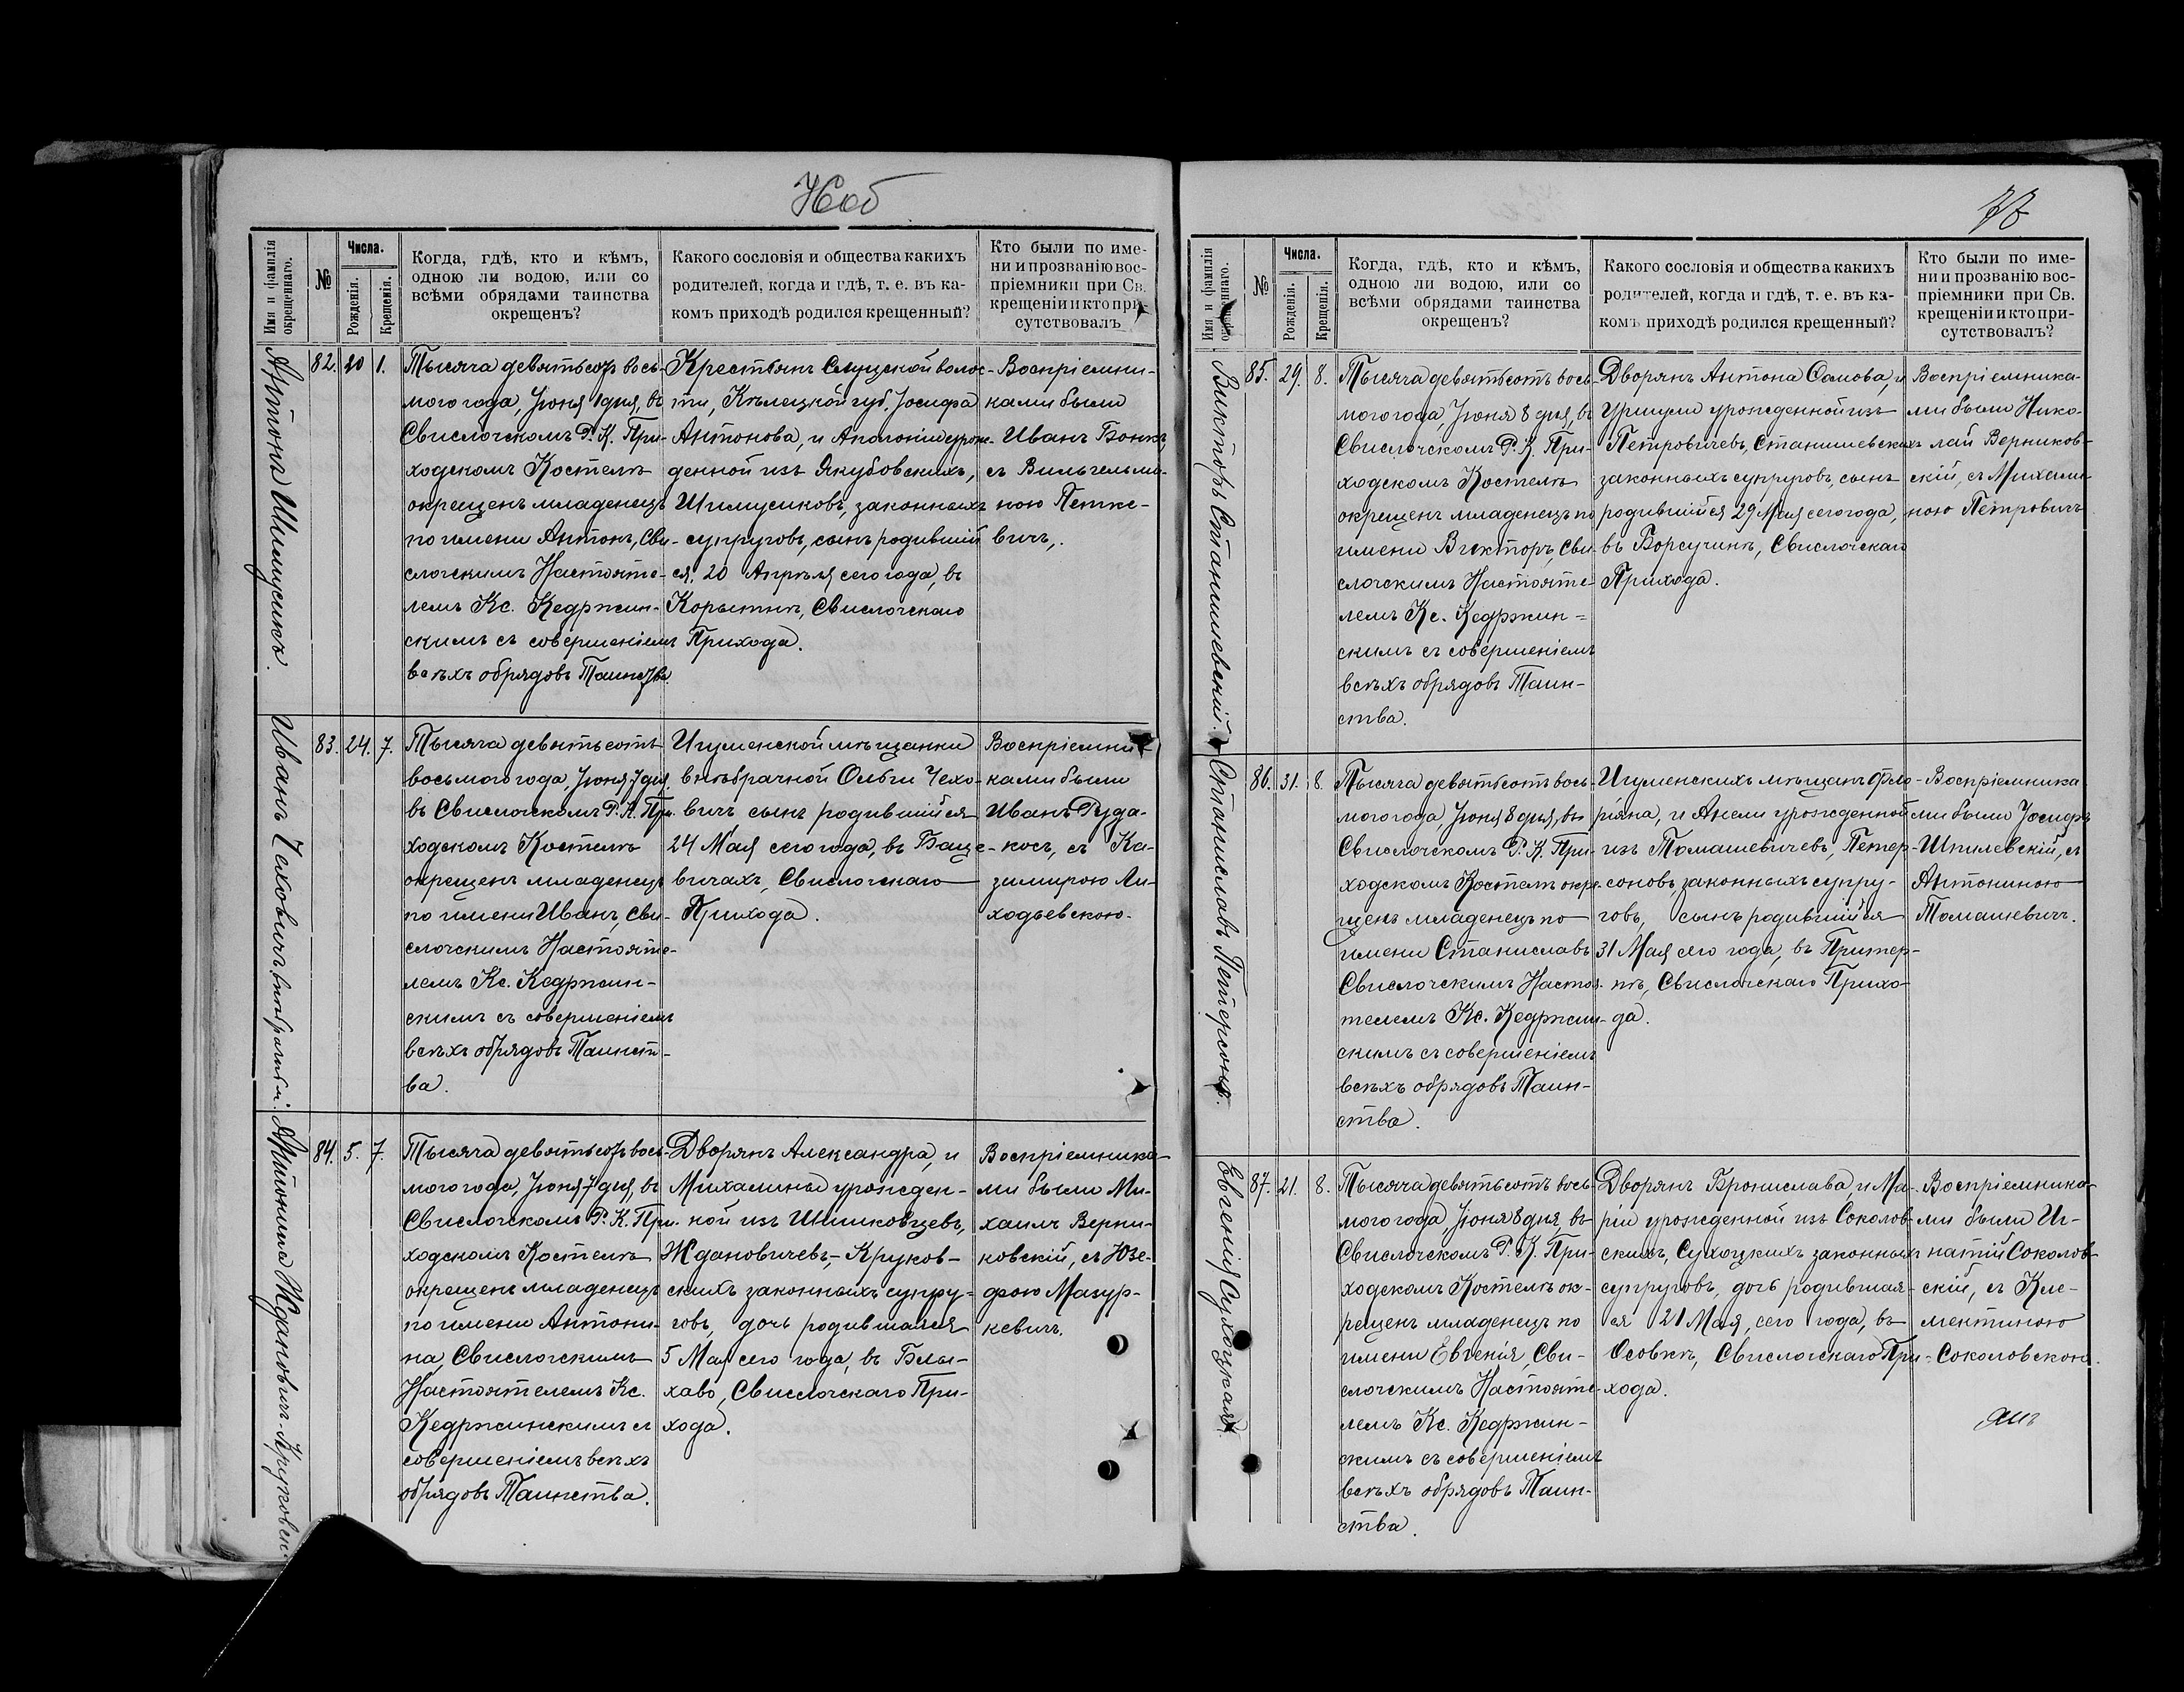 76об
Имя и фамилія окрещеннаго.
№
Числа.
Рожденія.
Крещенія.
Когда, гдѣ, кто и кѣмъ,
одною ли водою, или со
всѣми обрядами таинства
окрещенъ?
Какого сословія и общества какихъ
родителей, когда и гдѣ, т. е. въ ка-
комъ приходѣ родился крещенный?
Кто были по име-
ни и прозванію вос-
пріемники при Св.
крещеніи и кто при
сутствовалъ
Антонъ Шимусикъ.
82. 20 1.
Тысяча девятьсотъ вось-
мого года, Іюня 1 дня, въ
Свислочскомъ Р. К. При-
ходскомъ Костелѣ
окрещенъ младенецъ
по имени Антонъ, Сви-
слочскимъ Настояте-
лемъ Кс. Кедржин-
скимъ съ совершеніемъ
всѣхъ обрядовъ Таинства.
Крестьянъ Слущской волос-
ти, Кѣлецкой губ. Іосифа
Антонова, и Аполоніи урож-
денной изъ Якубовскихъ,
Шимусиковъ, законныхъ
супруговъ, сынъ родившій
ся 20 Апрѣля сего года, въ
Корытнѣ, Свислочскаго
Прихода.
Воспріемни-
ками были
Иванъ Бонкъ,
съ Вильгельми-
ною Петке-
вичъ.
Иванъ Чеховичъ внѣбрачный.
83. 24. 7.
Тысяча девятьсотъ
восьмого года, Іюня 7 дня,
въ Свислочскомъ Р. К. При-
ходскомъ Костелѣ
окрещенъ младенецъ
по имени Иванъ, Сви-
слочскимъ Настояте-
лемъ Кс. Кедржин-
скимъ съ совершеніемъ
всѣхъ обрядовъ Таинст-
ва.
Игуменской мѣщанки
внѣбрачной Ольги Чехо-
вичъ сынъ родившійся
24 Мая сего года, въ Баце-
вичахъ, Свислочскаго
Прихода.
Воспріемни-
ками были
Иванъ Руда-
косъ, съ Ка-
зимирою Ли-
ходзевскою.
Антонина Жданович-Круковск.
84. 5. 7.
Тысяча девятьсотъ вось-
мого года, Іюня 7 дня, въ
Свислочскомъ Р. К. При-
ходскомъ Костелѣ
окрещенъ младенецъ
по имени Антони-
на, Свислочскимъ
Настоятелемъ Кс.
Кедржинскимъ съ
совершеніемъ всѣхъ
обрядовъ Таинства.
Дворянъ Александра, и
Михалины урожден-
ной изъ Шишковцевъ,
Ждановичевъ-Круков-
скихъ законныхъ супру-
говъ, дочь родившаяся
5 Мая сего года, въ Блы-
хаво, Свислочскаго При-
хода.
Воспріемника-
ми были Ми-
хаилъ Верни-
ковскій, съ Юзе-
фою Мазур-
кевичъ.
77
Имя и фамилія окрещеннаго.
№
Числа.
Рожденія.
Крещенія.
Когда, гдѣ, кто и кѣмъ,
одною ли водою, или со
всѣми обрядами таинства
окрещенъ?
Какого сословія и общества какихъ
родителей, когда и гдѣ, т. е. въ ка-
комъ приходѣ родился крещенный?
Кто были по име-
ни и прозванію вос-
пріемники при Св.
крещеніи и кто при-
сутствовалъ?
Викторъ Станишевскій.
85. 29. 8.
Тысяча девятьсотъ вось-
мого года, Іюня 8 дня, въ
Свислочскомъ Р. К. При-
ходскомъ Костелѣ
окрещенъ младенецъ по
имени Викторъ, Сви-
слочскимъ Настояте-
лемъ Кс. Кедржин-
скимъ съ совершеніемъ
всѣхъ обрядовъ Таин-
ства.
Дворянъ Антона и
урожденной изъ
Петровичевъ, Станишевскихъ
законныхъ супруговъ, сынъ
родившійся 29 Мая сего года,
въ Борсучинѣ, Свислочскаго
Прихода.
Воспріемника-
ми были Нико-
лай Верников-
скій, съ Михали-
ною Петровичъ
Станиславъ Петерсонъ.
86. 31. 8.
Тысяча девятьсотъ вось-
мого года, Іюня 8 дня, въ
Свислочскомъ Р. К. При-
ходскомъ Костелѣ окре-
щенъ младенецъ по
имени Станиславъ
Свислочскимъ Настоя-
телемъ Кс. Кедржин-
скимъ съ совершеніемъ
всѣхъ обрядовъ Таин-
ства.
Игуменскихъ мѣщанъ Фло-
ріяна, и Анели урожденной
изъ Томашевичевъ, Петер-
соновъ, законныхъ супру-
говъ, сынъ родившійся
31 Мая сего года, въ Притер-
пѣ, Свислочскаго Прихо-
да.
Воспріемника
ми были Іосифъ
Шпилевскій, съ
Антониною
Томашевичъ.
Евгенія Сухоцкая.
87. 21. 8.
Тысяча девятьсотъ вось-
мого года Іюня 8 дня, въ
Свислочскомъ Р. К. При-
ходскомъ Костелѣ ок-
рещенъ младенецъ по
имени Евгенія, Сви-
слочскимъ Настояте-
лемъ Кс. Кедржин-
скимъ съ совершеніемъ
всѣхъ обрядовъ Таин-
ства.
Дворянъ Бронислава, и Ма-
ріи урожденной изъ Соколов-
скихъ, Сухоцкихъ законныхъ
супруговъ, дочь родившая-
ся 21 Мая, сего года, въ
Осовкѣ, Свислочскаго При-
хода.
Воспріемника-
ми были Иг-
натій Соколов-
скій, съ Кле-
ментиною
Соколовскою.